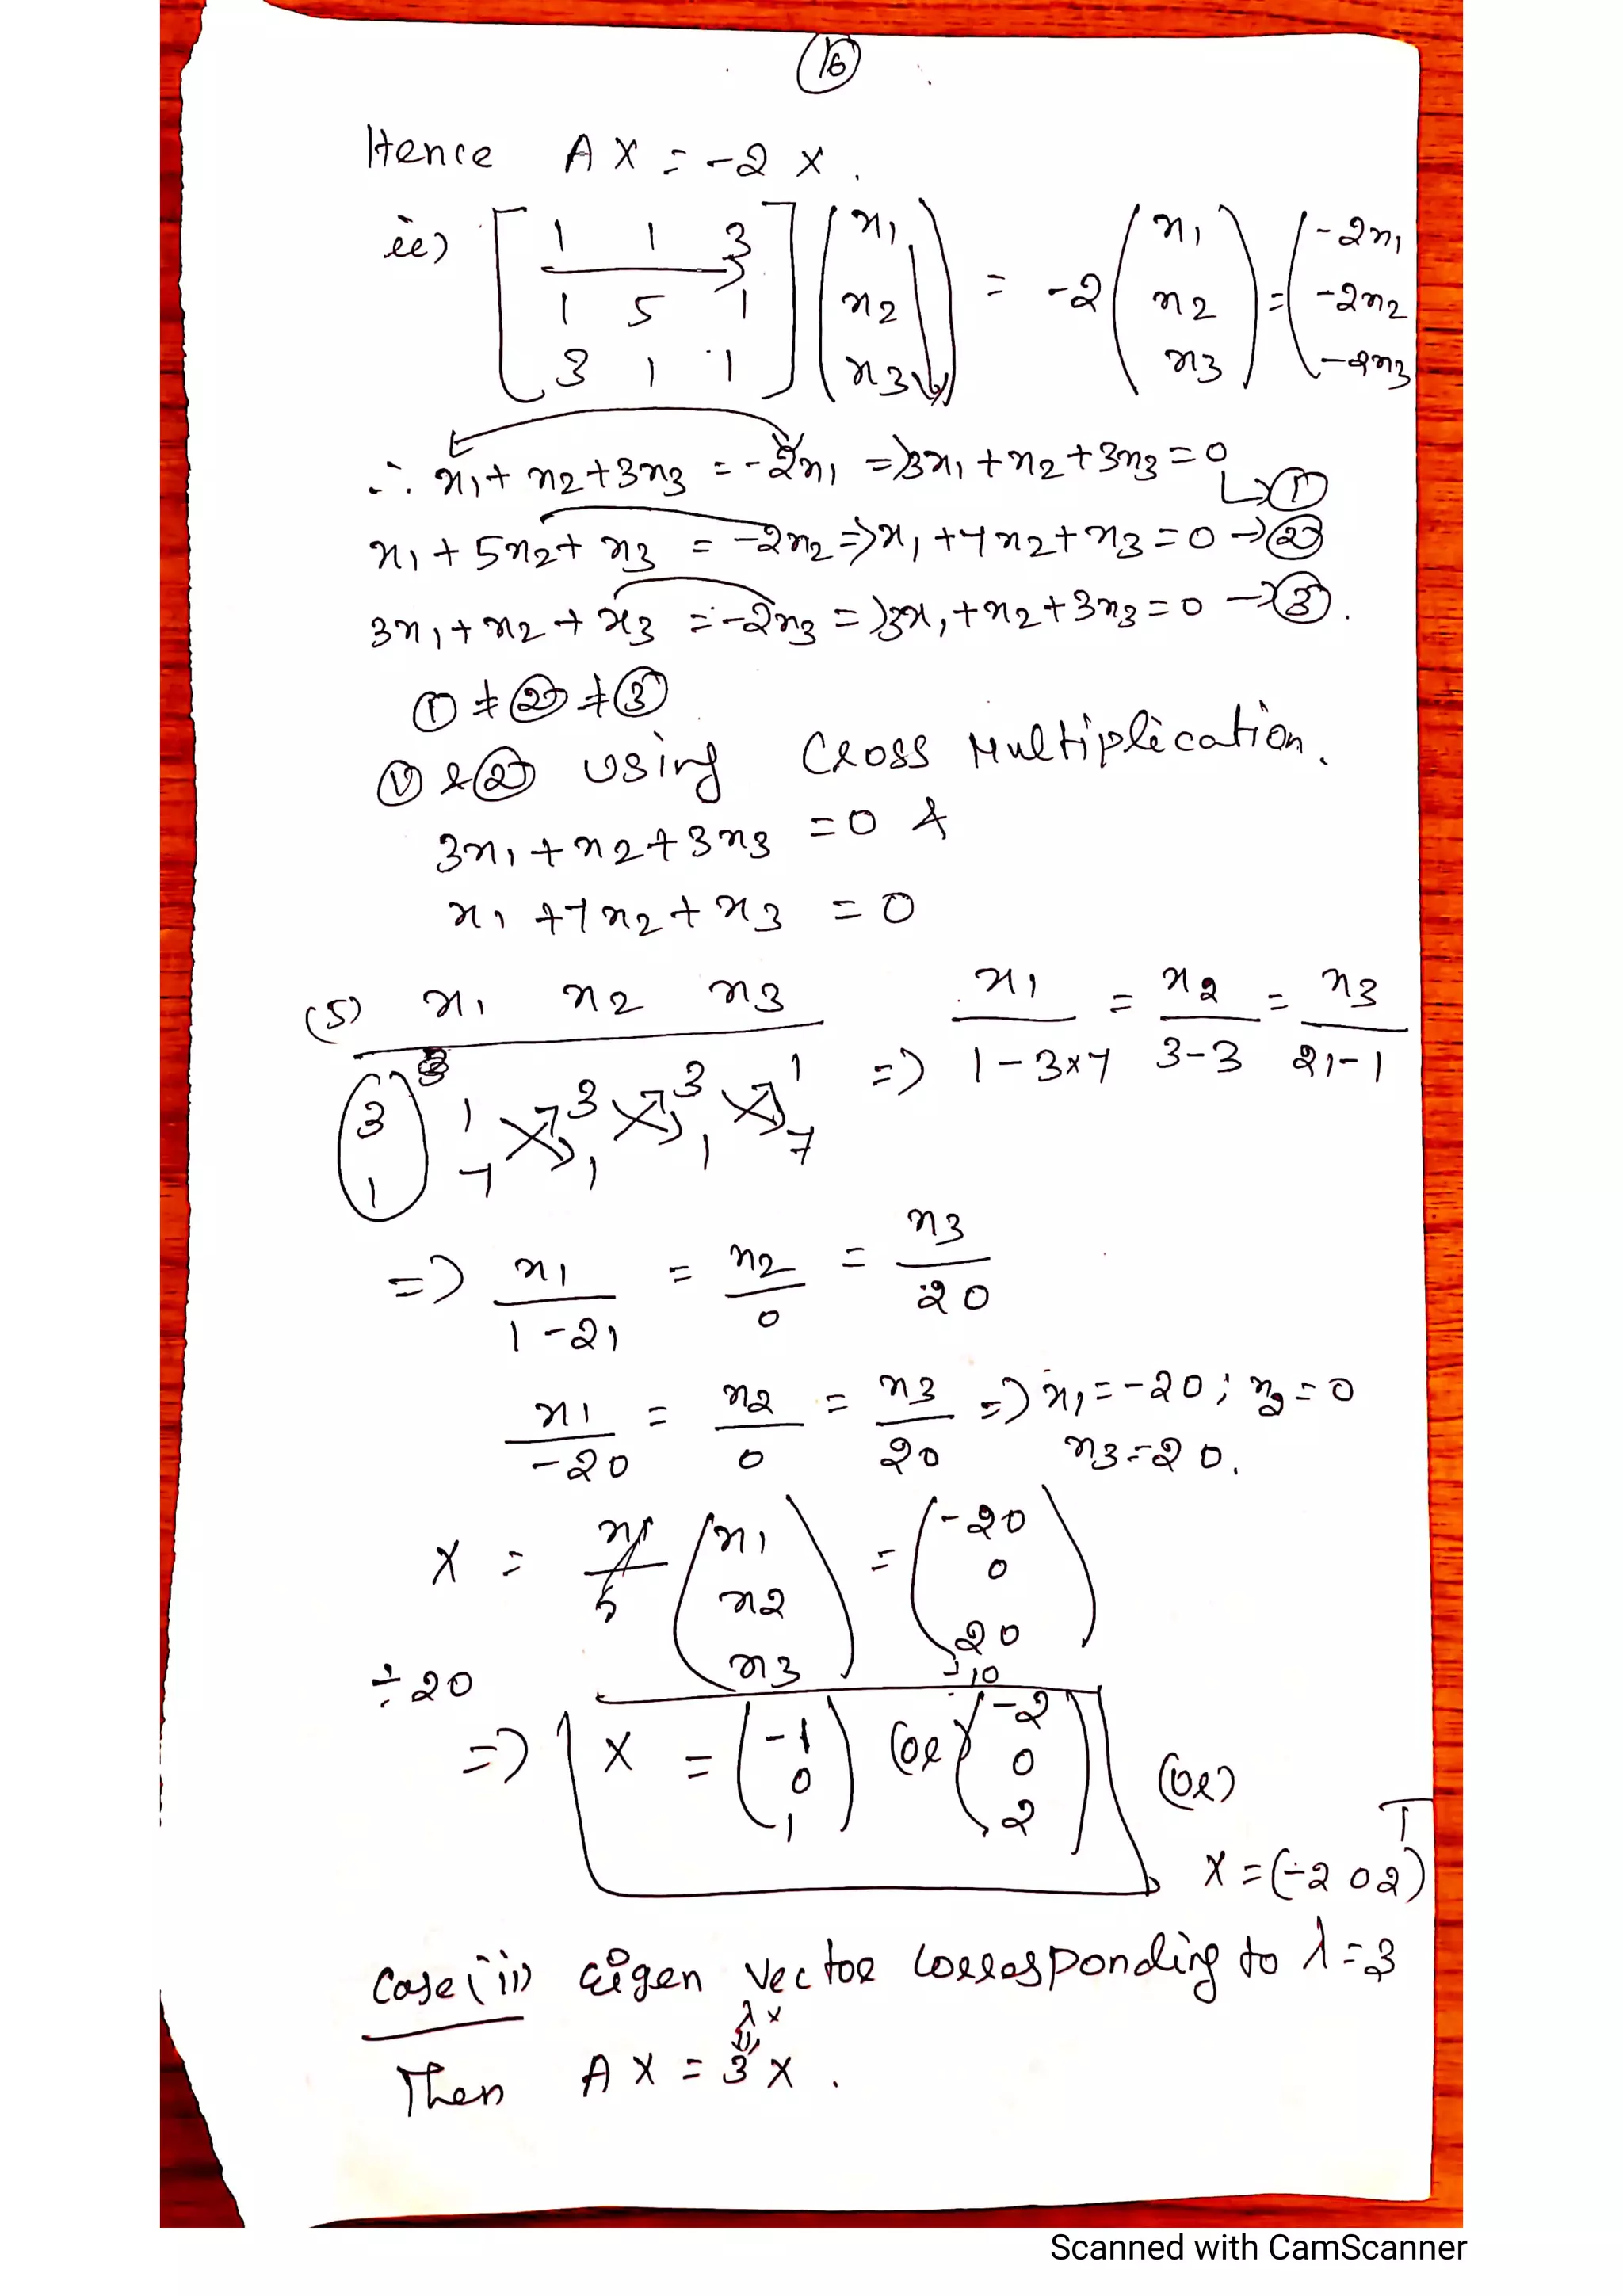 16
Hence AX = -2X.
ie) [1 1 3; 1 5 1; 3 1 1] (x1 x2 x3) = -2 (x1 x2 x3) = (-2x1 -2x2 -2x3)
∴ x1 + x2 + 3x3 = -2x1 => 3x1 + x2 + 3x3 = 0 → ①
x1 + 5x2 + x3 = -2x2 => x1 + 7x2 + x3 = 0 → ②
3x1 + x2 + x3 = -2x3 => 3x1 + x2 + 3x3 = 0 → ③.
① ≠ ② ≠ ③
① & ② using Cross Multiplication.
3x1 + x2 + 3x3 = 0 &
x1 + 7x2 + x3 = 0
(5) x1 x2 x3
3 1 3 3 1
1 7 1 1 7
=> x1/1-3×7 = x2/3-3 = x3/21-1
=> x1/1-21 = x2/0 = x3/20
x1/-20 = x2/0 = x3/20 => x1 = -20; x2 = 0
x3 = 20.
X = (x1 x2 x3) = (-20 0 20)
÷20
÷10
=> X = (-1 0 1) (or) (-2 0 2) (or)
X = (-2 0 2)T
Case (ii) Eigen vector corresponding to λ = 3
λx
Then AX = 3X.
Scanned with CamScanner